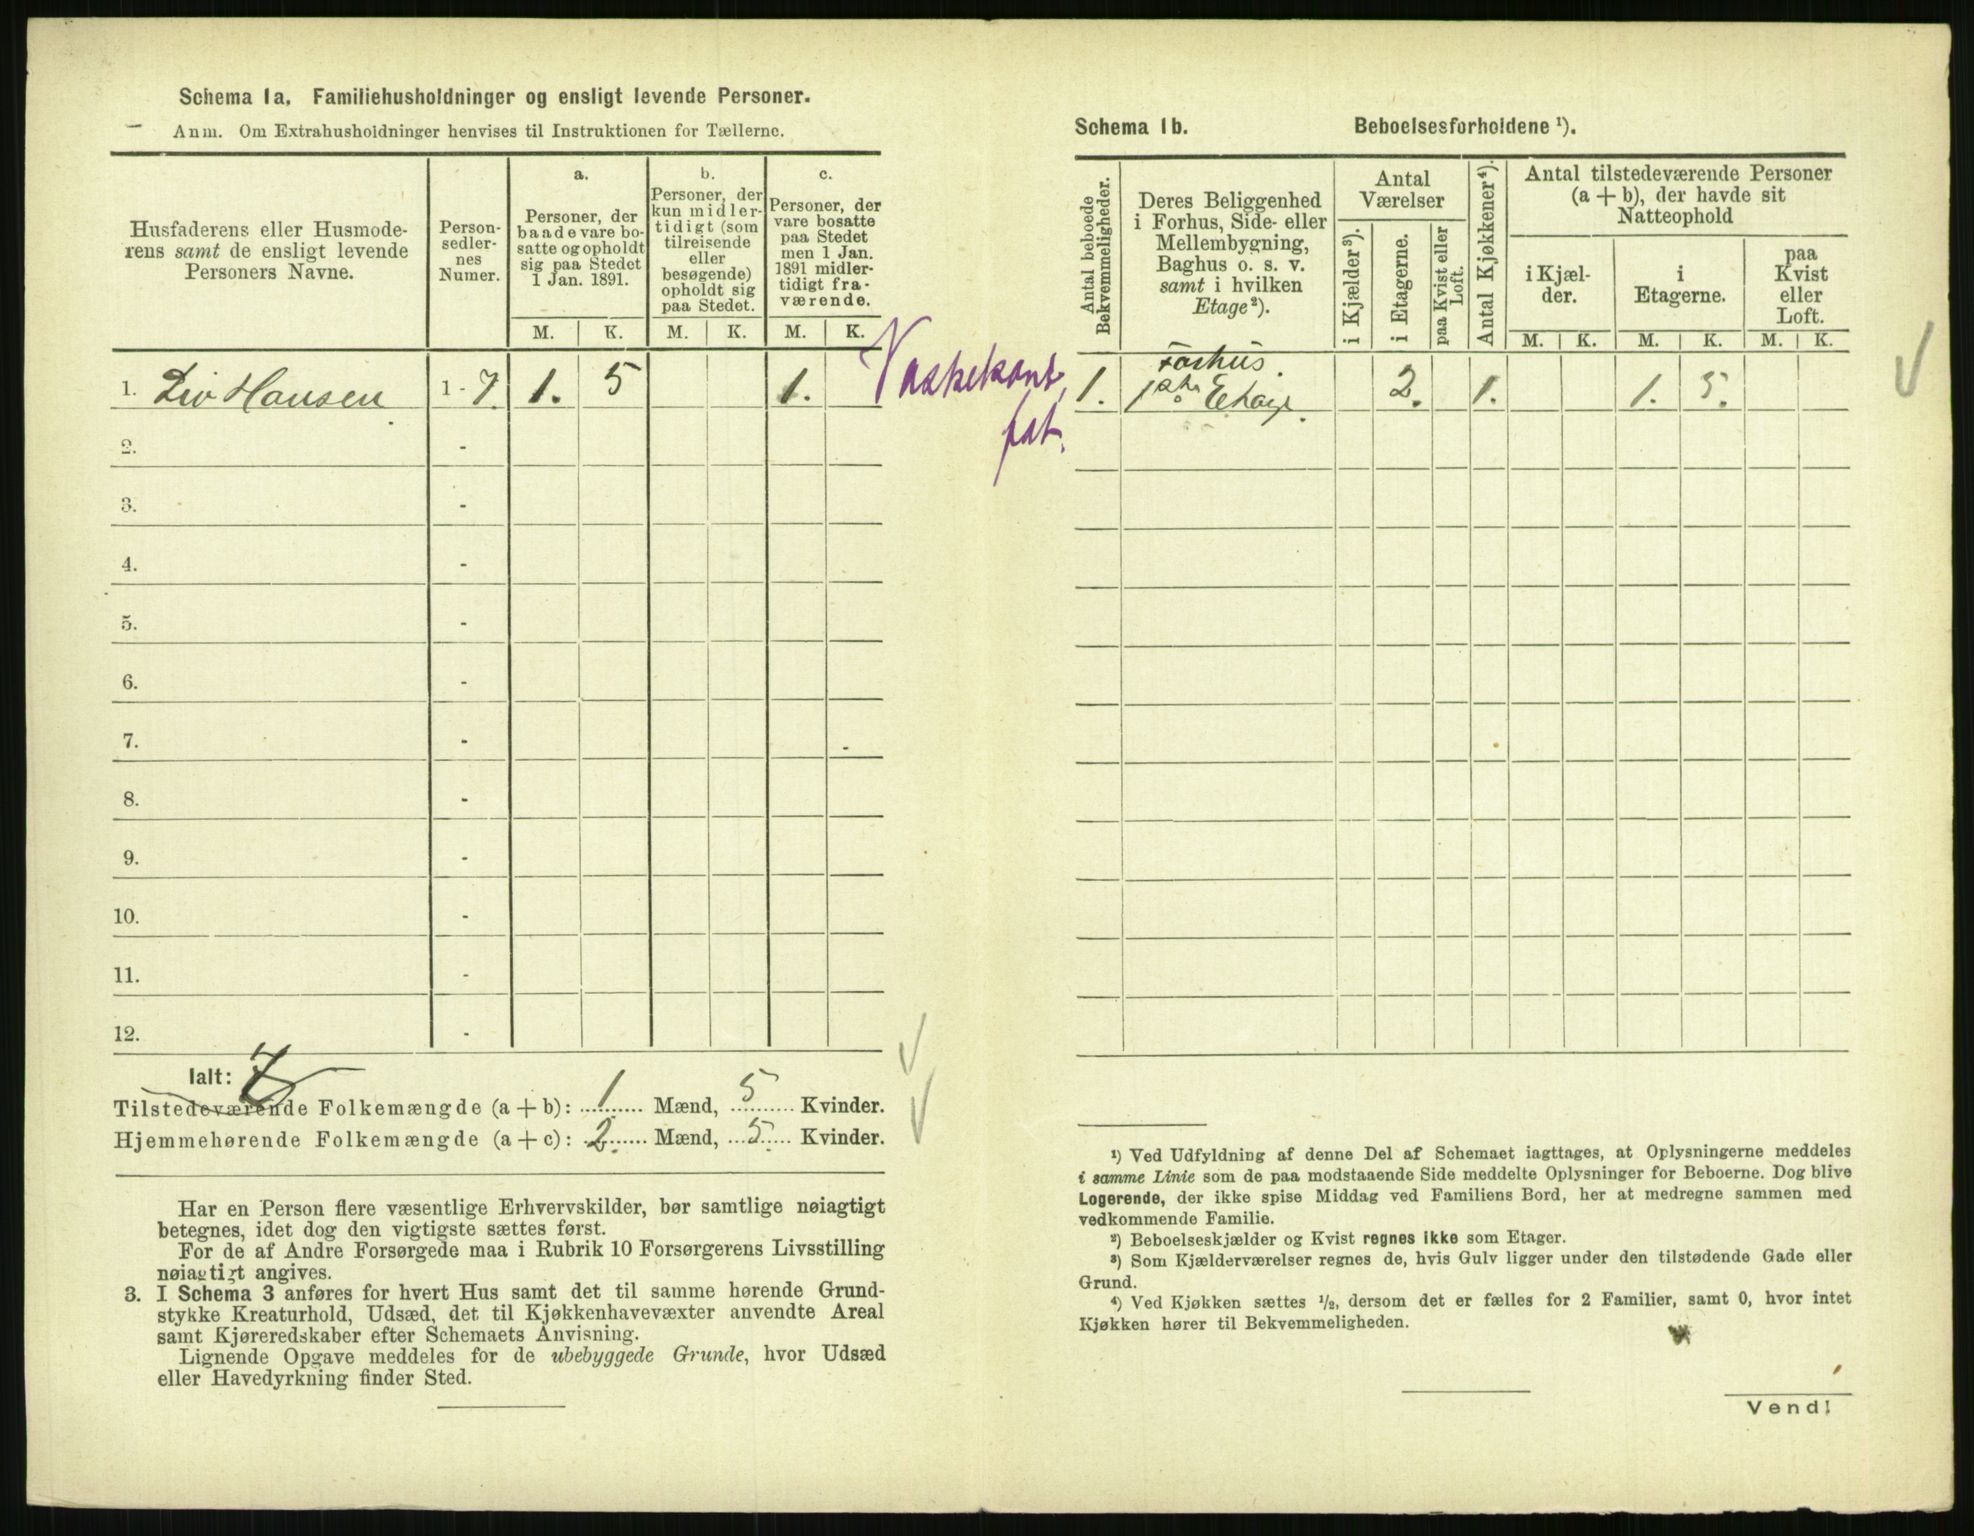 Schema 1a. Familiehusholdninger og ensligt levende Personer.
Anm. Om Extrahusholdninger henvises til Instruktionen for Tællerne.
Husfaderens eller Husmode-
rens samt de ensligt levende
Personers Navne.
Person-
sedler-
nes
Numer.
a.
Personer, der
baade vare bo-
satte og opholdt
sig paa Stedet
1 Jan. 1891.
b.
Personer, der
kun midler-
tidigt (som
tilreisende
eller
besøgende)
opholdt sig
paa Stedet.
c.
Personer, der
vare bosatte
paa Stedet
men 1 Jan.
1891 midler-
tidigt fra-
værende.
M. K. M. K. M. K.
1. Liv Hansen 1-7. 1. 5 1.
2. -
3. -
4. -
5. -
6. -
7. -
8. -
9. -
10. -
11. -
12. -
Ialt: 7
Tilstedeværende Folkemængde (a + b): 1 Mænd, 5 Kvinder.
Hjemmehørende Folkemængde (a + c): 2. Mænd, 5. Kvinder.
Har en Person flere væsentlige Erhvervskilder, bør samtlige nøiagtigt
betegnes, idet dog den vigtigste sættes først.
For de af Andre Forsørgede maa i Rubrik 10 Forsørgerens Livsstilling
nøiagtigt angives.
3. I Schema 3 anføres for hvert Hus samt det til samme hørende Grund-
stykke Kreaturhold, Udsæd, det til Kjøkkenhavevæxter anvendte Areal
samt Kjøreredskaber efter Schemaets Anvisning.
Lignende Opgave meddeles for de ubebyggede Grunde, hvor Udsæd
eller Havedyrkning finder Sted.
Schema 1b. Beboelsesforholdene ¹).
Antal beboede
Bekvemmeligheder.
Deres Beliggenhed
i Forhus, Side- eller
Mellembygning,
Baghus o. s. v.
samt i hvilken
Etage²).
Antal
Værelser
i Kjælder³).
i Etagerne.
paa Kvist eller
Loft.
Antal Kjøkkener⁴).
Antal tilstedeværende Personer
(a + b), der havde sit
Natteophold
i Kjæl-
der.
i
Etagerne.
paa
Kvist
eller
Loft.
M. K. M. K. M. K.
1. Forhus. 2. 1. 1. 5.
1ste Etage.
¹) Ved Udfyldning af denne Del af Schemaet iagttages, at Oplysningerne meddeles
i samme Linie som de paa modstaaende Side meddelte Oplysninger for Beboerne. Dog blive
Logerende, der ikke spise Middag ved Familiens Bord, her at medregne sammen med
vedkommende Familie.
²) Beboelseskjælder og Kvist regnes ikke som Etager.
³) Som Kjælderværelser regnes de, hvis Gulv ligger under den tilstødende Gade eller
Grund.
⁴) Ved Kjøkken sættes ½, dersom det er fælles for 2 Familier, samt 0, hvor intet
Kjøkken hører til Bekvemmeligheden.
Vend!